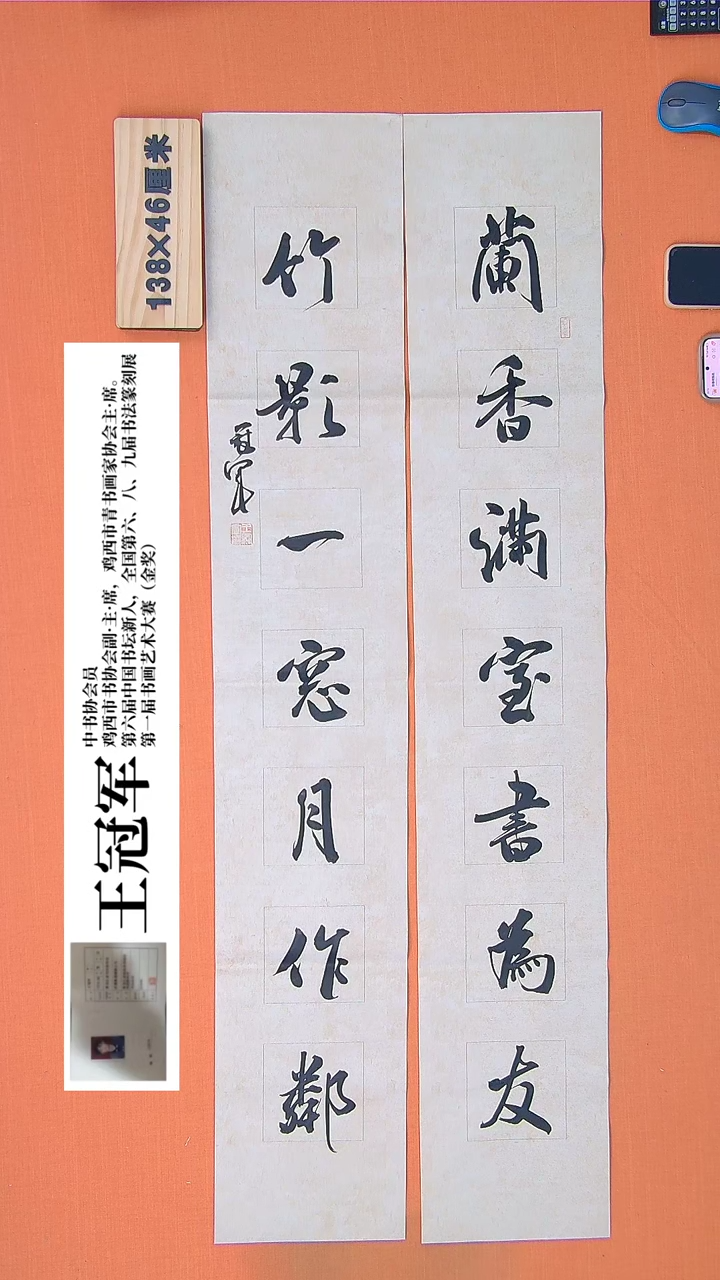 蘭香滿室書為友
竹影一窓月作鄰
冠军
138×46厘米
王冠军
中书协会员
鸡西市书协会副·主·席，鸡西市青书画家协会主·席。
第六届中国书坛新人，全国第六、八、九届书法篆刻展
第一届书画艺术大赛（金奖）